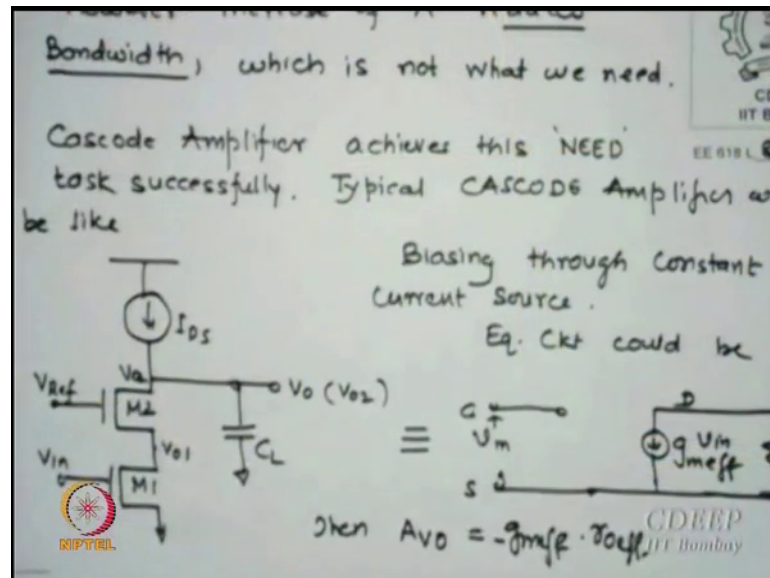 increase of
Bandwidth, which is not what we need.
Cascode Amplifier achieves this 'NEED'
task successfully. Typical CASCODE Amplifier
be like
Biasing through Constant
Current Source.
Eq. Ckt could be
IDS
Va
VRef
M2
Vo (Vo2)
Vo1
CL
Vin
M1
≡
G
Vin
S
D
gmeff Vin
Then Avo = -gmeff . roeff.
IIT B
EE 618 L
NPTEL
CDEEP
IIT Bombay